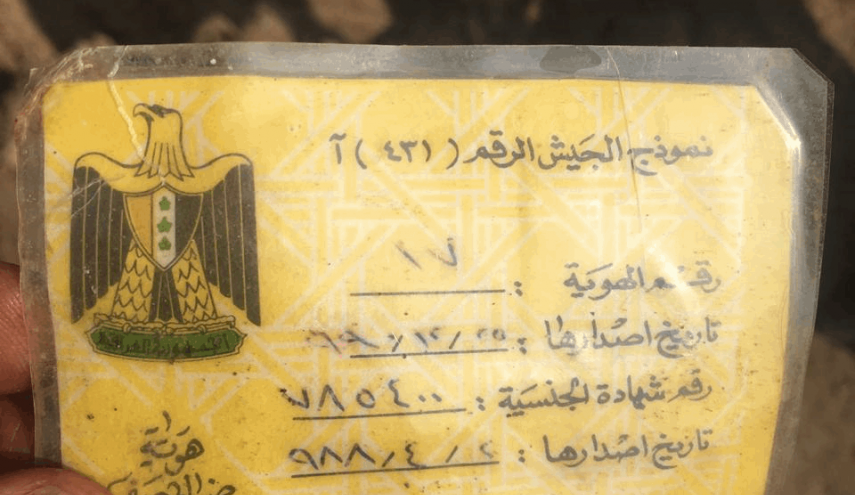 نموذج الجيش الرقم ( ٤٣١ ) آ
رقم الهوية :
تاريخ اصدارها : ٢٥ / ١٢ /
رقم شهادة الجنسية : ٧٨٥٤٠٠
تاريخ اصدارها : ٢ / ٤ / ٩٨٨
الجمهورية العراقية
هوية